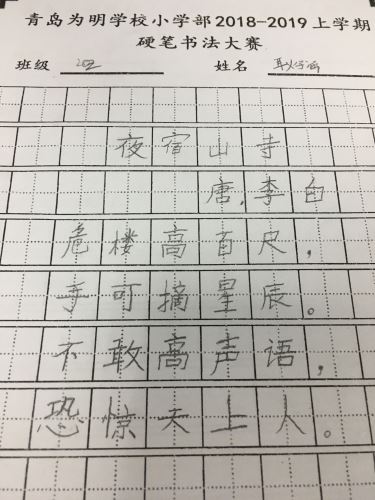 青岛为明学校小学部2018-2019上学期
硬笔书法大赛
班级 姓名
夜宿山寺
唐,李白
危楼高百尺，
手可摘星辰。
不敢高声语，
恐惊天上人。